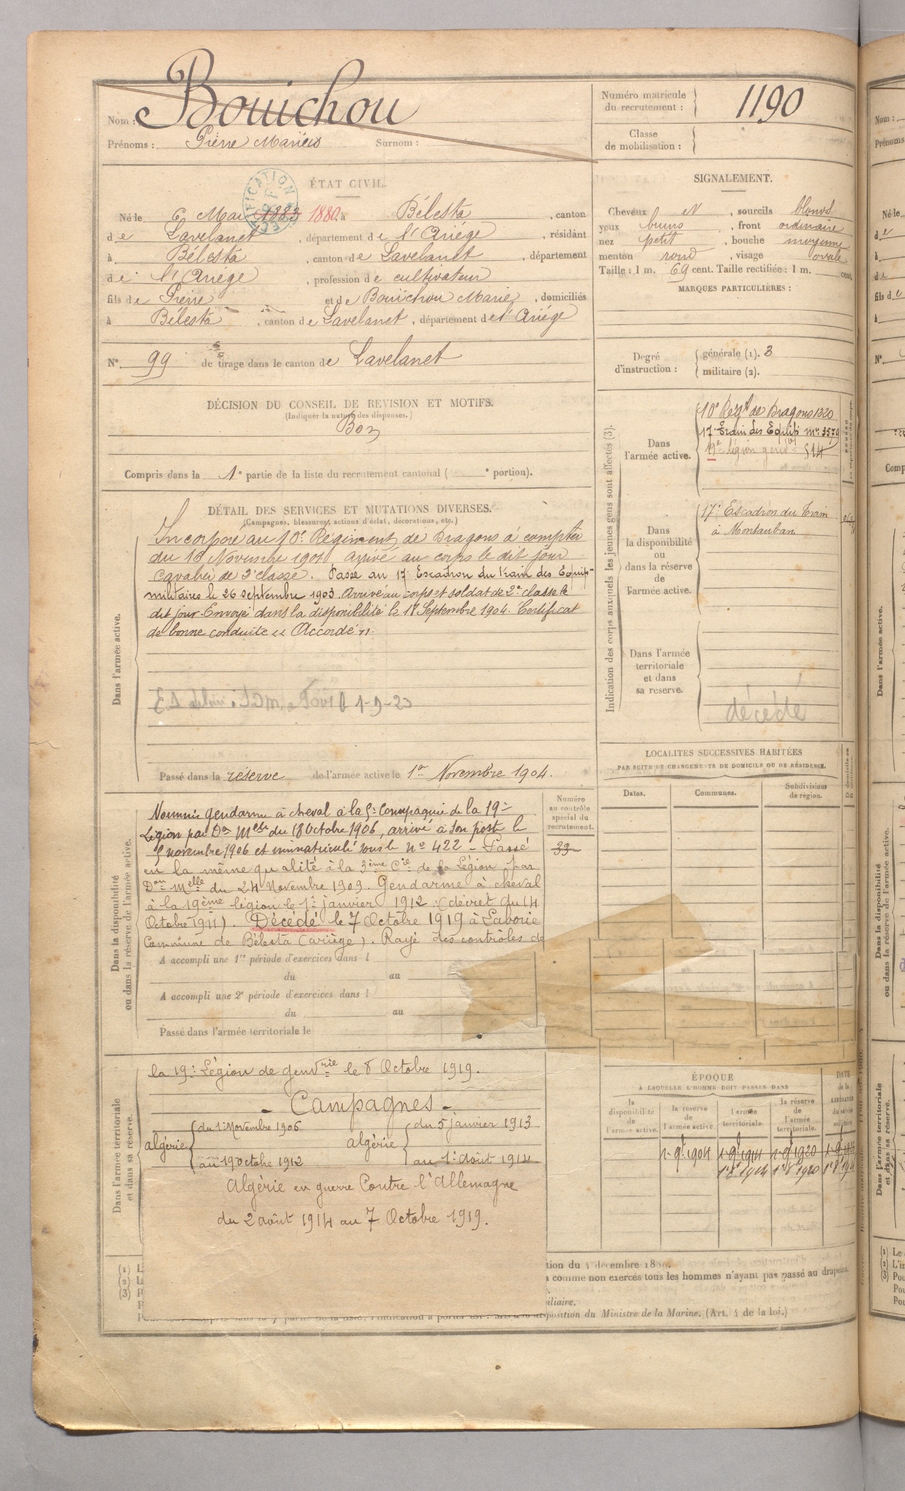 Nom : Bouichou
Prénoms : Pierre Marius Surnom :
Numéro matricule du recrutement : 1190
Classe de mobilisation :
ÉTAT CIVIL.
Né le 6 Mai 1883 1880 à Bélesta , canton
de Lavelanet , département de l'Ariège , résidant
à Bélesta , canton de Lavelanet , département
de l'Ariège , profession de cultivateur
fils de Pierre et de Bouichou Marie , domiciliés
à Bélesta , canton de Lavelanet , département de l'Ariège
N° 99 de tirage dans le canton de Lavelanet
SIGNALEMENT.
Cheveux et , sourcils blonds
yeux bruns , front ordinaire
nez petit , bouche moyenne
menton rond , visage ovale
Taille : 1 m. 69 cent. Taille rectifiée : 1 m. cent.
MARQUES PARTICULIÈRES :
Degré d'instruction : générale (1). 3
militaire (2).
DÉCISION DU CONSEIL DE REVISION ET MOTIFS.
(Indiquer la nature des dispenses.)
Bon
Compris dans la 1e partie de la liste du recrutement cantonal ( e portion).
DÉTAIL DES SERVICES ET MUTATIONS DIVERSES.
(Campagnes, blessures, actions d'éclat, décorations, etc.)
Dans l'armée active.
Incorporé au 10e Régiment de Dragons à compter
du 16 Novembre 1901 arrivé au corps le dit jour
Cavalier de 2e classe. Passé au 17e Escadron du train des Equip-
militaires le 26 Septembre 1903. Arrivé au corps et soldat de 2e classe le
dit jour. Envoyé dans la disponibilité le 18 Septembre 1904. Certificat
de bonne conduite "Accordé".
1-9-23
Passé dans la réserve de l'armée active le 1er Novembre 1904.
Indication des corps auxquels les jeunes gens sont affectés (3).
Dans l'armée active.
10e Regt de Dragons 1320
17e Train des Equip. Mres 3570
19e légion gend 514
Dans la disponibilité ou dans la réserve de l'armée active.
17e Escadron du Train
à Montauban
Dans l'armée territoriale et dans sa réserve.
décédé
LOCALITÉS SUCCESSIVES HABITÉES
PAR SUITE DE CHANGEMENTS DE DOMICILE OU DE RÉSIDENCE.
Dates. Communes. Subdivisions de région.
Dans la disponibilité ou dans la réserve de l'armée active.
Numéro au contrôle spécial du recrutement.
33
Nommé gendarme à cheval à la 5e Compagnie de la 19e
Légion par Don Melle du 18 Octobre 1906, arrivé à son poste le
5 novembre 1906 et immatriculé sous le No 422 - Passé
en la même qualité à la 3ème Cie de la Légion par
Don Melle du 24 Novembre 1909. Gendarme à cheval
à la 19ème légion le 1er janvier 1912 (décret du 14
Octobre 1911). Décédé le 7 Octobre 1919 à Laborie
Commune de Bélesta (Ariège). Rayé des contrôles de
A accompli une 1re période d'exercices dans l
du au
A accompli une 2e période d'exercices dans l
du au
Passé dans l'armée territoriale le
Dans l'armée territoriale et dans sa réserve.
la 19e Légion de gendrie le 8 Octobre 1919.
- Campagnes -
algérie { du 5 Novembre 1906 au 19 octobre 1912
algérie { du 5 janvier 1913 au 1er Août 1914
Algérie en guerre Contre l'Allemagne
du 2 août 1914 au 7 Octobre 1919.
ÉPOQUE
À LAQUELLE L'HOMME DOIT PASSER DANS
la disponibilité de l'armée active.
la réserve de l'armée active
l'armée territoriale.
la réserve de l'armée territoriale.
1 9bre 1904 1 9bre 1914 1 9bre 1920
1er 8bre 1914 1er 8bre 1920
(1)
(2)
(3)
comme non exercés tous les hommes n'ayant pas passé au drapeau
disposition du Ministre de la Marine. (Art. 4 de la loi.)